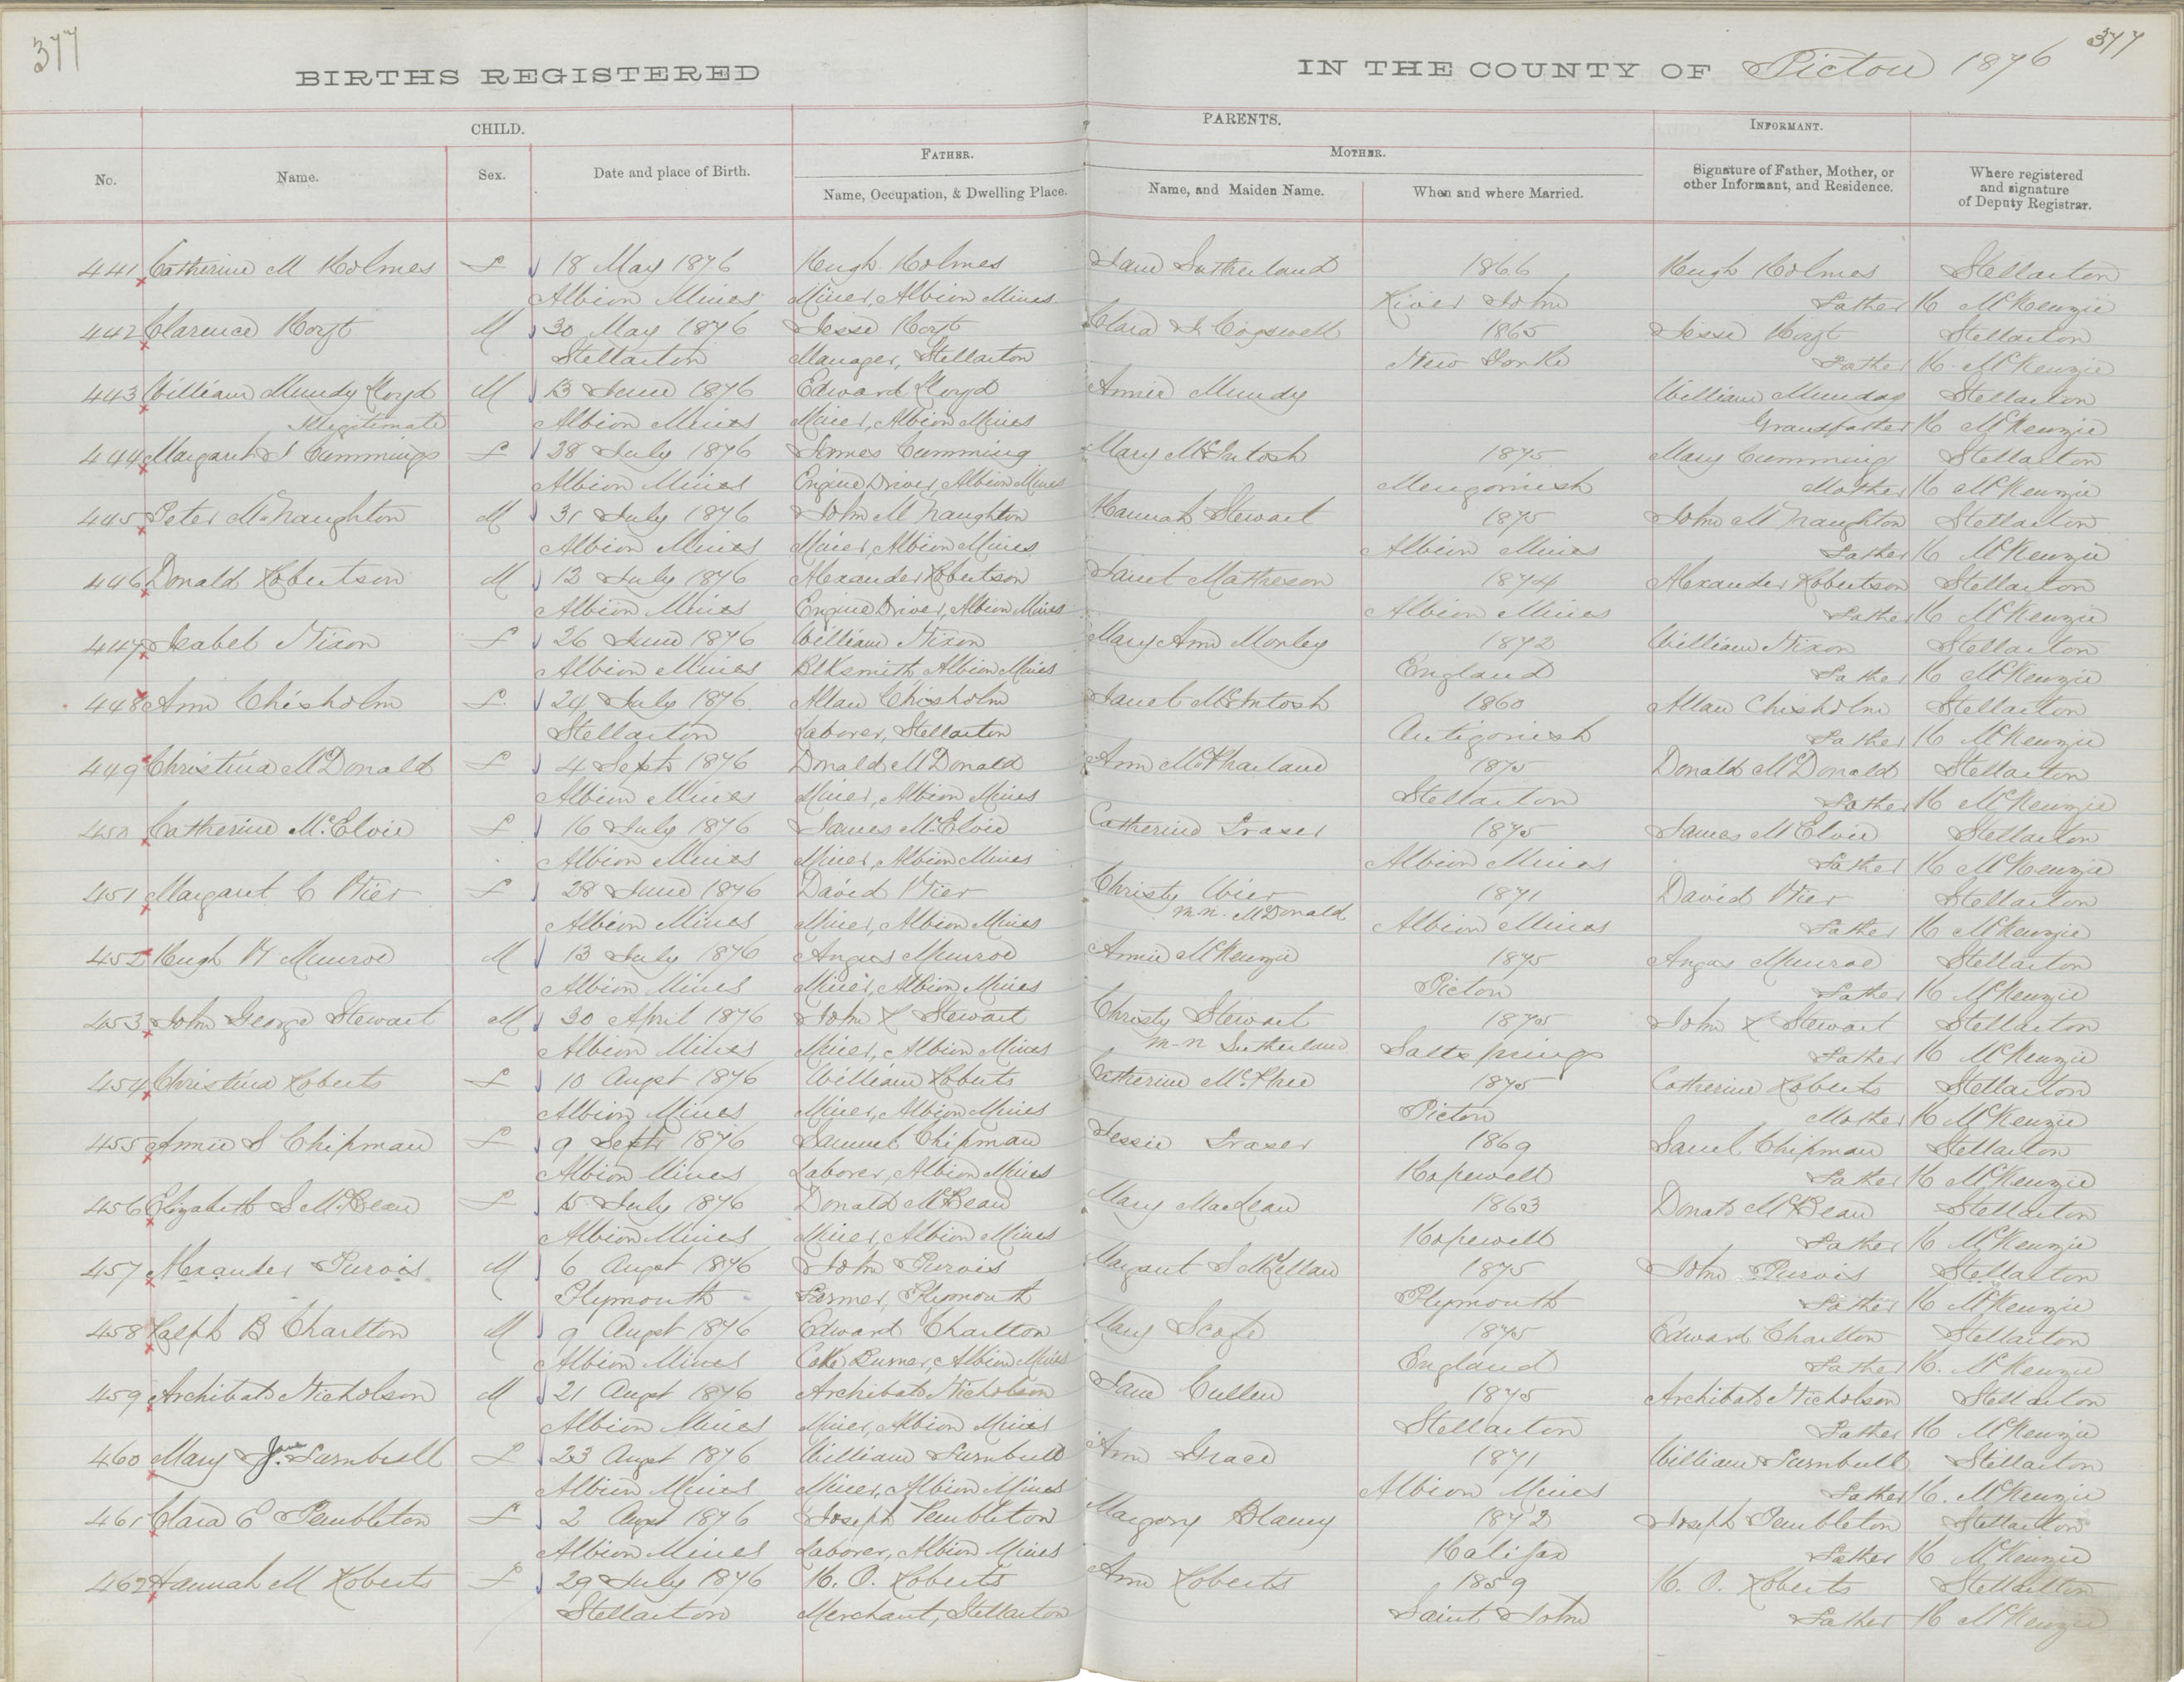 377
377
BIRTHS REGISTERED
IN THE COUNTY OF Pictou 1876
CHILD.
PARENTS.
INFORMANT.
FATHER.
MOTHER.
No.
Name.
Sex.
Date and place of Birth.
Name, Occupation, & Dwelling Place.
Name, and Maiden Name.
When and where Married.
Signature of Father, Mother, or
other Informant, and Residence.
Where registered
and signature
of Deputy Registrar.
441 Catherine M Holmes F 18 May 1876 Hugh Holmes Jane Sutherland 1866 Hugh Holmes Stellarton
Albion Mines Miner, Albion Mines River John Father H McKenzie
442 Clarence Hoyt M 30 May 1876 Jesse Hoyt Clara Cogswell 1865 Jesse Hoyt Stellarton
Stellarton Manager, Stellarton New York Father H. McKenzie
443 William Mundy Lloyd M 13 June 1876 Edward Lloyd Annie Mundy William Munday Stellarton
Illegitimate Albion Mines Miner, Albion Mines Grandfather H McKenzie
444 Margaret J Cummings F 28 July 1876 James Cumming Mary McIntosh 1875 Mary Cumming Stellarton
Albion Mines Engine Driver, Albion Mines Merigomish Mother H McKenzie
445 Peter McNaughton M 31 July 1876 John McNaughton Hannah Stewart 1875 John McNaughton Stellarton
Albion Mines Miner, Albion Mines Albion Mines Father H McKenzie
446 Donald Robertson M 13 July 1876 Alexander Robertson Janet Matheson 1874 Alexander Robertson Stellarton
Albion Mines Engine Driver, Albion Mines Albion Mines Father H McKenzie
447 Isabel Nixon F 26 June 1876 William Nixon Mary Ann Morley 1872 William Nixon Stellarton
Albion Mines Blksmith Albion Mines England Father H McKenzie
448 Ann Chisholm F. 24 July 1876 Allan Chisholm Janet McIntosh 1860 Allan Chisholm Stellarton
Stellarton Laborer, Stellarton Antigonish Father H McKenzie
449 Christina McDonald F 4 Septr 1876 Donald McDonald Ann McPharland 1875 Donald McDonald Stellarton
Albion Mines Miner, Albion Mines Stellarton Father H McKenzie
450 Catherine McElvie F 16 July 1876 James McElvie Catherine Fraser 1875 James McElvie Stellarton
Albion Mines Miner, Albion Mines Albion Mines Father H McKenzie
451 Margaret C Wier F 28 June 1876 David Wier Christy Wier 1871 David Wier Stellarton
Albion Mines Miner, Albion Mines m.n. McDonald Albion Mines Father H McKenzie
452 Hugh W Munroe M 13 July 1876 Angus Munroe Annie McKenzie 1875 Angus Munroe Stellarton
Albion Mines Miner, Albion Mines Pictou Father H McKenzie
453 John George Stewart M 30 April 1876 John R Stewart Christy Stewart 1875 John R Stewart Stellarton
Albion Mines Miner, Albion Mines m-n Sutherland Salt Springs Father H McKenzie
454 Christina Roberts F 10 Augst 1876 William Roberts Catherine McPhee 1875 Catherine Roberts Stellarton
Albion Mines Miner, Albion Mines Pictou Mother H McKenzie
455 Annie S Chipman F 9 Septr 1876 Samuel Chipman Jessie Fraser 1869 Saml Chipman Stellarton
Albion Mines Laborer, Albion Mines Hopewell Father H McKenzie
456 Elizabeth S McBean F 15 July 1876 Donald McBean Mary MacLean 1863 Donald McBean Stellarton
Albion Mines Miner, Albion Mines Hopewell Father H McKenzie
457 Alexander Purvis M 6 Augst 1876 John Purvis Margaret S McLellan 1875 John Purvis Stellarton
Plymouth Farmer, Plymouth Plymouth Father H McKenzie
458 Ralph B Charlton M 9 Augst 1876 Edward Charlton Mary Scafe 1875 Edward Charlton Stellarton
Albion Mines Coke Burner, Albion Mines England Father H. McKenzie
459 Archibald Nicholson M 21 Augst 1876 Archibald Nicholson Jane Cullen 1875 Archibald Nicholson Stellarton
Albion Mines Miner, Albion Mines Stellarton Father H McKenzie
460 Mary Jane Turnbull F 23 Augst 1876 William Turnbull Ann Grace 1871 William Turnbull Stellarton
Albion Mines Miner, Albion Mines Albion Mines Father H. McKenzie
461 Clara E Pembleton F 2 Augst 1876 Joseph Pembleton Margory Blamy 1872 Joseph Pembleton Stellarton
Albion Mines Laborer, Albion Mines Halifax Father H McKenzie
462 Hannah M Roberts F 29 July 1876 H. O. Roberts Ann Roberts 1859 H. O. Roberts Stellarton
Stellarton Merchant, Stellarton Saint John Father H McKenzie